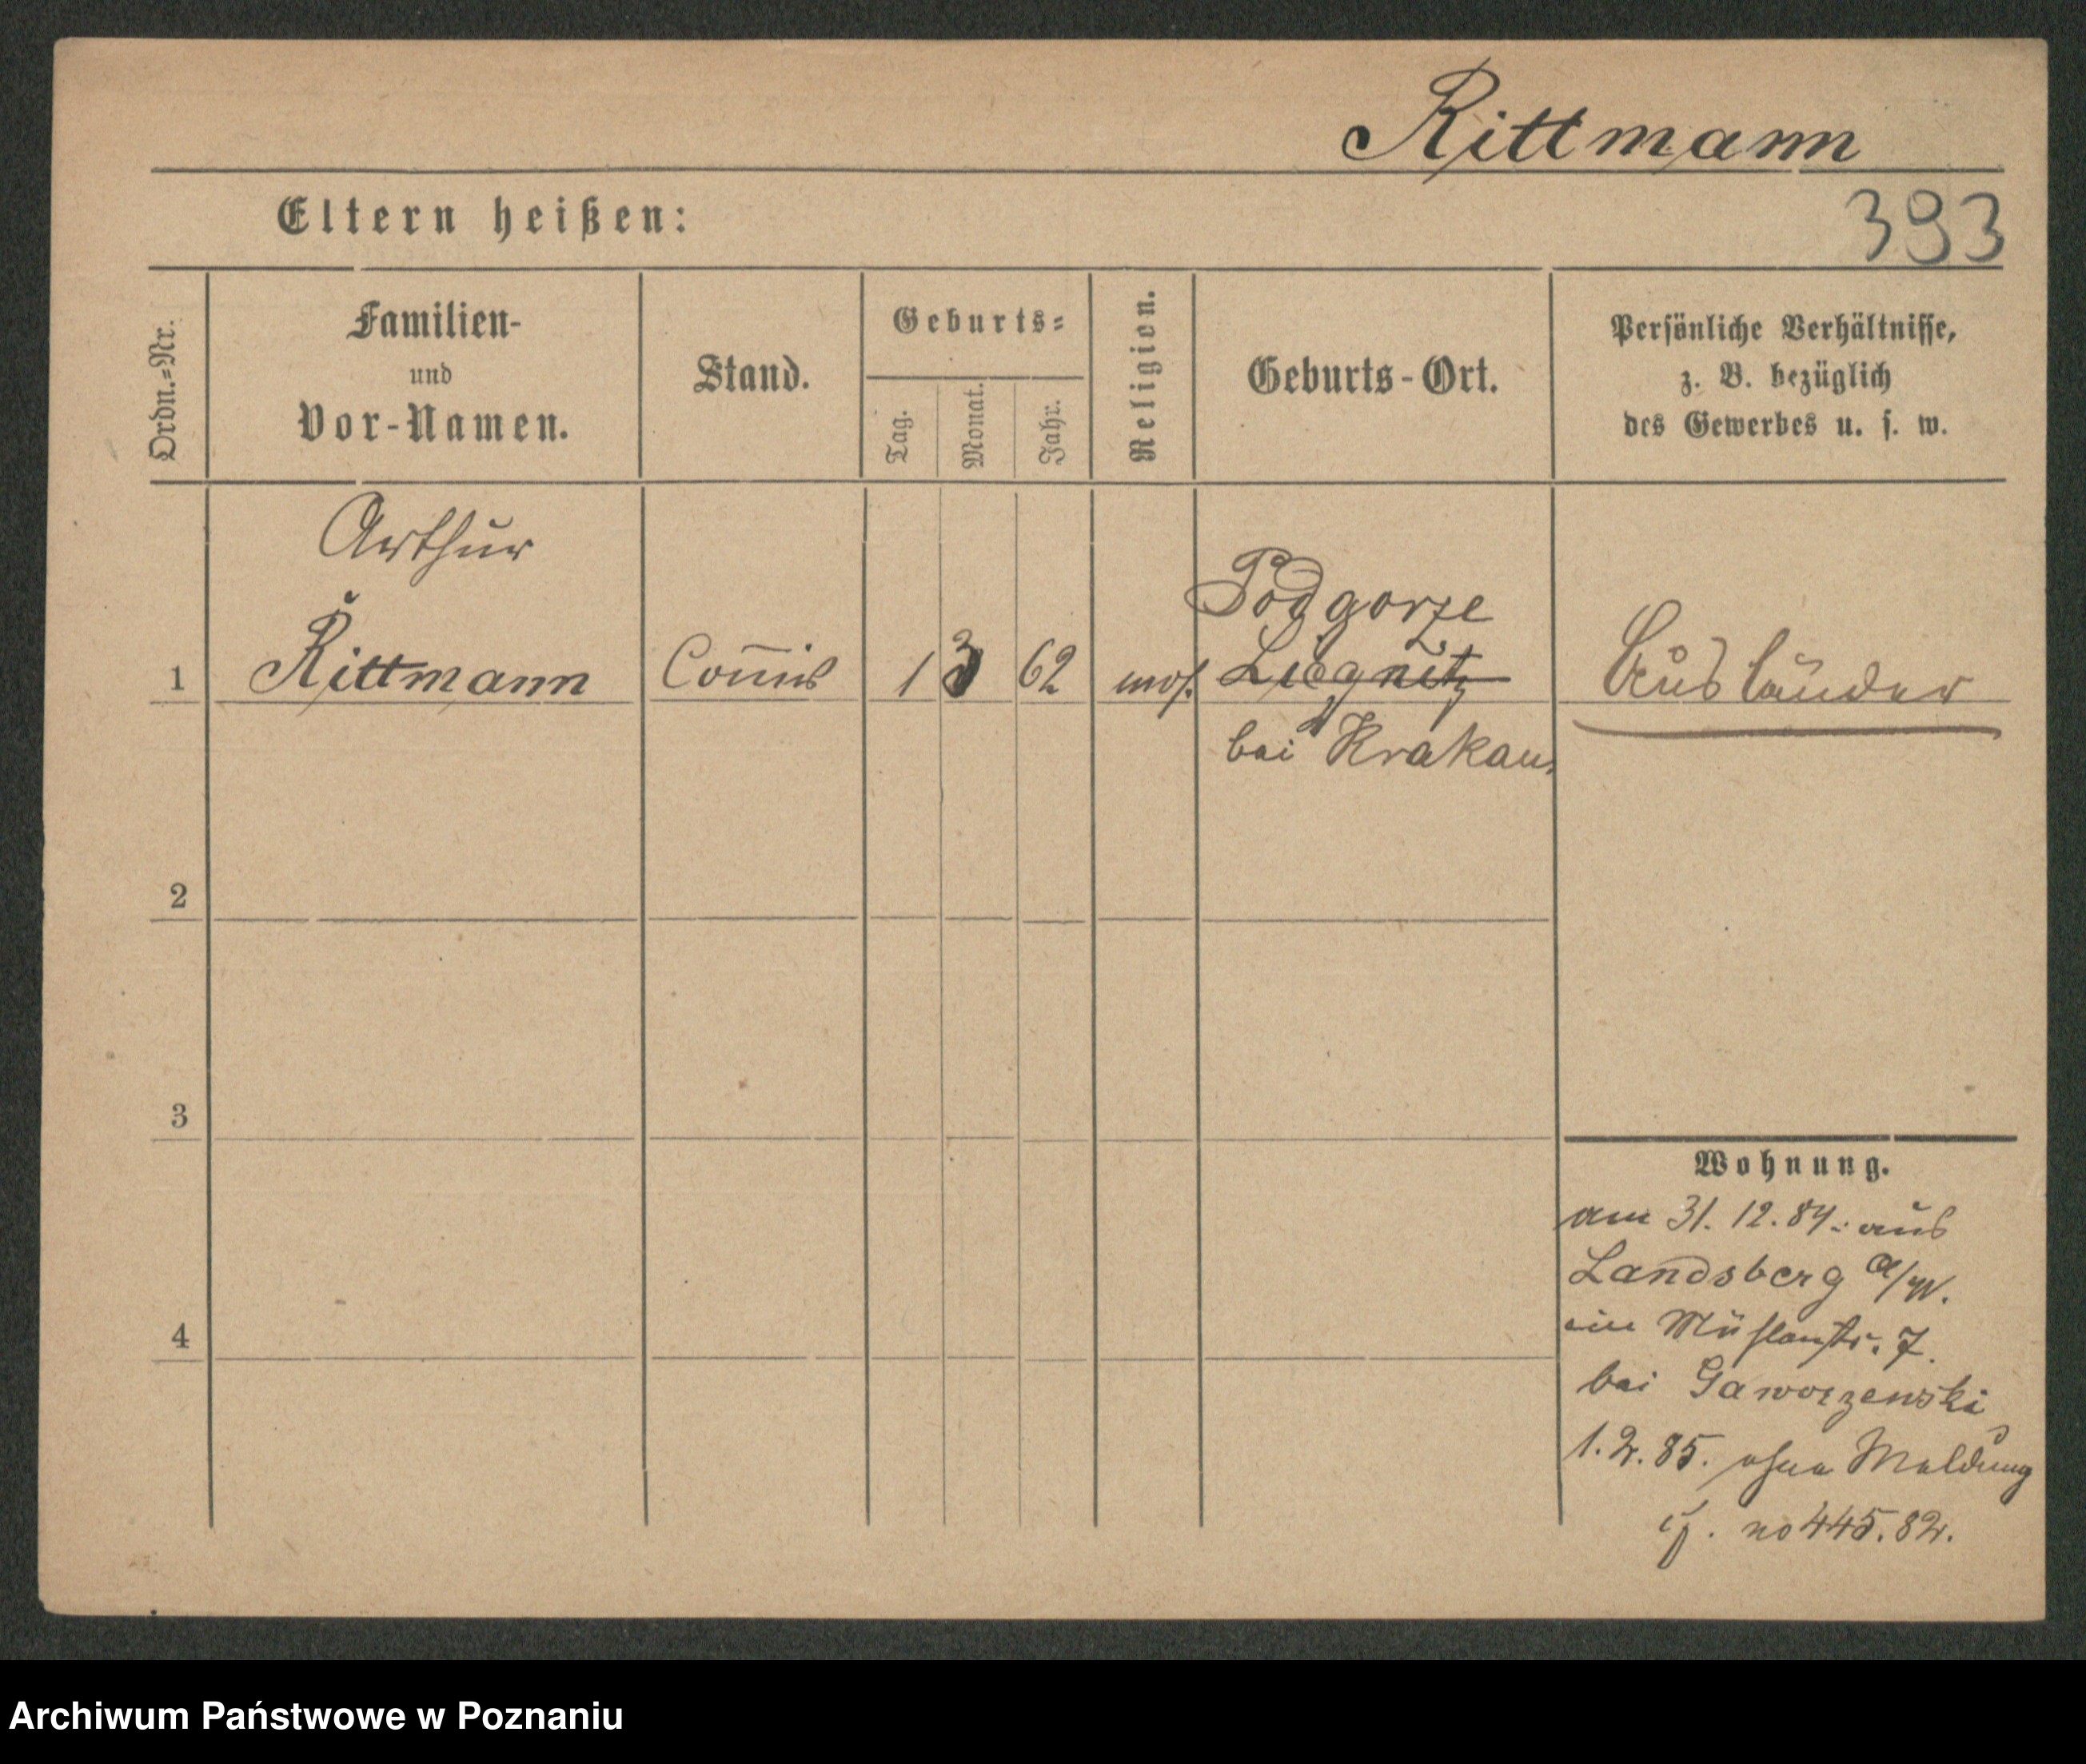 Rittmann
Eltern heißen:
393
Ordn.=Nr.
Familien-
und
Vor-Namen.
Stand.
Geburts=
Tag.
Monat.
Jahr.
Religion.
Geburts-Ort.
Persönliche Verhältnisse,
z. B. bezüglich
des Gewerbes u. s. w.
Arthur
1 Rittmann Com̄is 1 3 62 mos. Podgorze
Liegnitz
bei Krakau.
Ausländer
2
3
4
Wohnung.
am 31. 12. 84. aus
Landsberg a/W.
in Mühlenstr. 7.
bei Gaworzewski
1. 2. 85. ohne Meldung
cf. no 445. 82.
Archiwum Państwowe w Poznaniu